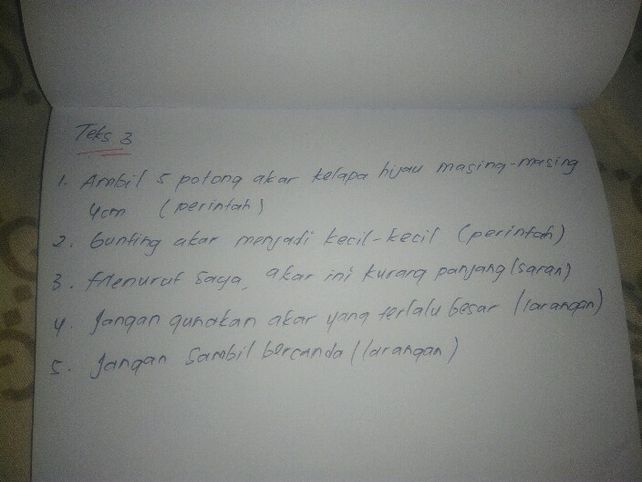 Teks 3
1. Ambil 5 potong akar kelapa hijau masing-masing
4cm (perintah)
2. Gunting akar menjadi kecil-kecil (perintah)
3. Menurut saya, akar ini kurang panjang (saran)
4. Jangan gunakan akar yang terlalu besar (larangan)
5. Jangan sambil bercanda (larangan)